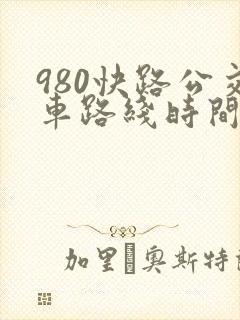 980快路公交
車路綫時間
加里 奥斯特